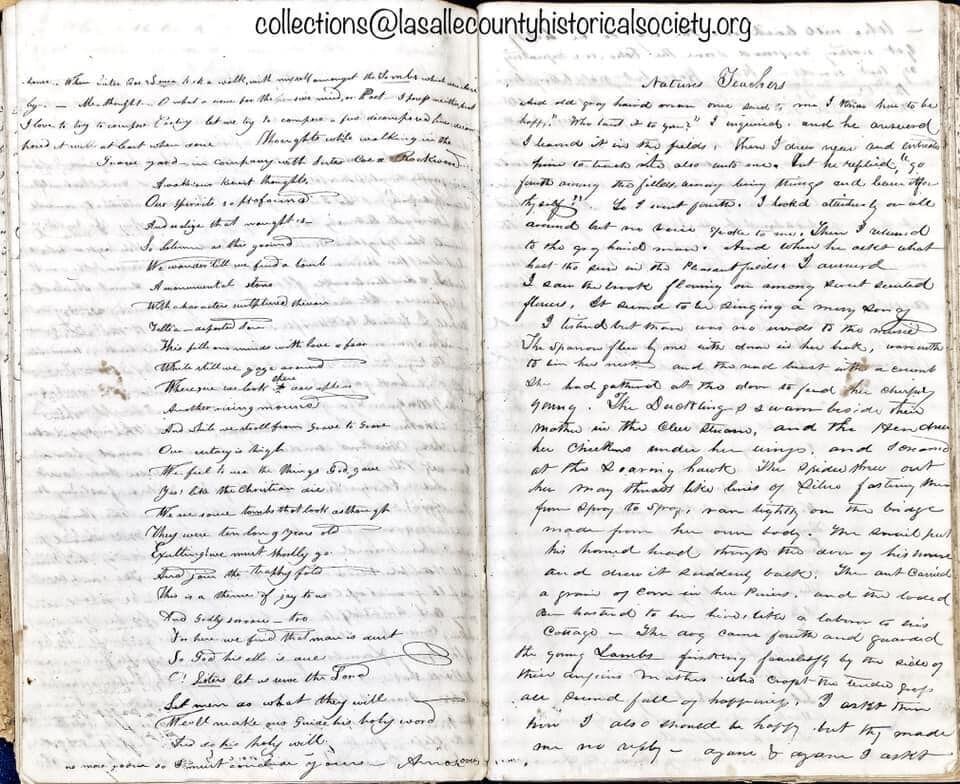 collections@lasallecountyhistoricalsociety.org
home. When Sister Cara & Some took a walk, with myself amongst the Tombs which are close
by. — Me thought O what a scene for the pensive mind, or Poet —
I love to try to compose Poetry let me try to compose a few
it will at least when done Thoughts while walking in the
Grave yard — in company with Sister Cara Rockwood
Awakens burnt thoughts
Our spirits so profound
And nalize that naught is
So Solemn as this ground
We wander till we find a tomb
A monumental stone
With characters sculptured thereon
Tells a departed one
This fills our minds with love & fear
While still we gaze around
Where ere we look there
Another rising mound
And while we stroll from Grave to Grave
Our extacy is high
We feel to use the things God gave
Yes! like the Christian die
We see some tombs that look as though
They were ten long years old
Exulting! we must shortly go
And join the fold
This is a theme of joy to us
And Godly sorrow — too
In here we find that man is dust
So God his all is due
O! Sisters let us serve the Lord
Let men do what they will
We'll make our Guide his holy word
And do his holy will.
no more so I must conclude yours —
Natures Teachers
And old gray haired man once said to me I knew how to be
happy." "Who taut it to you?" I inquired. and he answered
I leand it in the fields, then I drew near and
him to teach it also unto me. but he replied, "go
fourth among the fields, among living things and learn it for
thyself"! So I went fourth. I looked attentively on all
around but no voice spoke to me. Then I returned
to the gray haird man. And when he askt what
hast thou seen in the Pleasant fields. I answerd
I saw the brook flowing on among sweet scented
flowers, It seemd to be singing a merry Song
I listend but there was no words to the music
The Sparrow flew by me with down in her beak,
to line her nest and the red breast with a crumb
She had gathered at the door to feed her chirping
young. The Ducklings swam beside their
mother in the clear stream, and the Hen drew
her Chickens under her wings, and screamd
at the Soaring hawk The Spider threw out
her many threads like lines of Silver fasting them
from Spray to Spray, ran lightly on the bridge
made from her own body. The snail put
his horned head through the door of his house
and drew it suddenly back. The ant carried
a grain of corn in her Pincers. and the loded
Bee hasted to her hive. like a laborer to his
Cottage — The dog came fourth and guarded
the young Lambs frisking fearlessly by the side of
their anxious mothers who cropt the tender grass
all seemd full of happiness. I askt them
how I also should be happy but they made
me no reply — agane & agane I askt